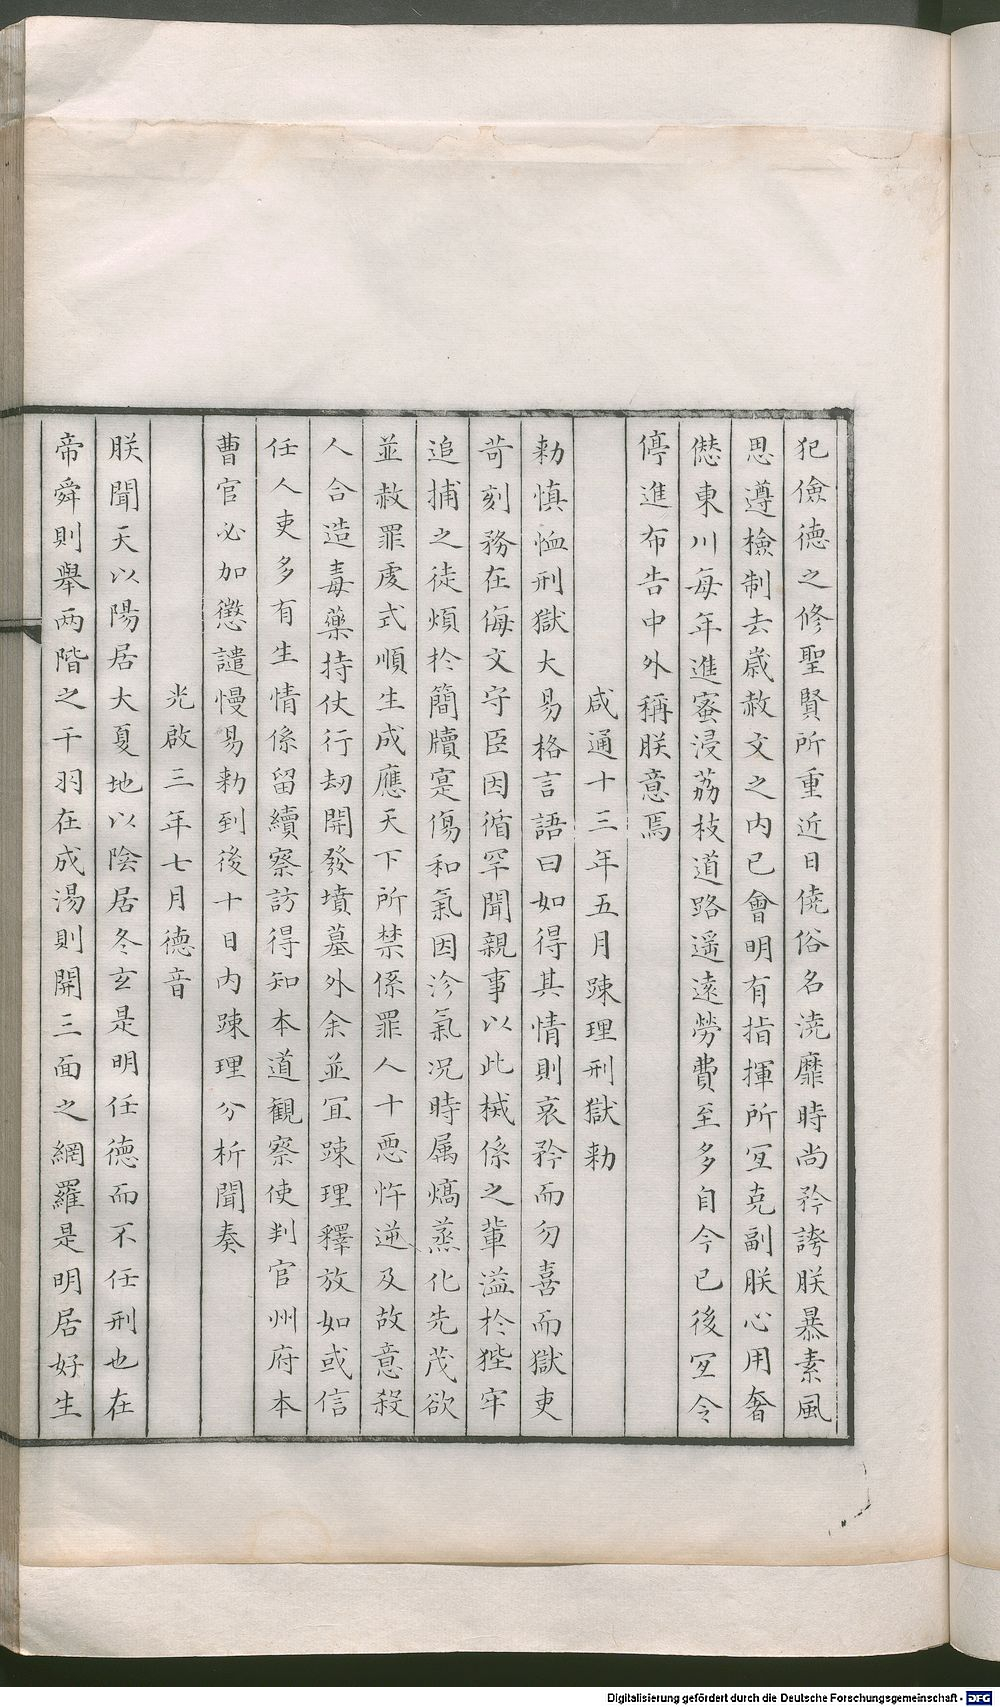 犯儉德之修聖賢所重近日僥俗名澆靡時尚矜誇朕暴素風
思遵檢制去歲赦文之內已會明有指揮所宜克副朕心用奢
僭東川每年進蜜浸荔枝道路遥遠勞費至多自今已後宜令
停進布告中外稱朕意焉
咸通十三年五月踈理刑獄勑
勑慎恤刑獄大易格言語曰如得其情則哀矜而勿喜而獄吏
苛刻務在侮文守臣因循罕聞親事以此械係之輩溢於狴牢
追捕之徒煩於簡牘寔傷和氣因沴氣况時属熇蒸化先茂欲
並赦罪戾式順生成應天下所禁係罪人十惡忤逆及故意殺
人合造毒藥持仗行劫開發墳墓外余並宜踈理釋放如或信
任人吏多有生情係留續察訪得知本道觀察使判官州府本
曹官必加懲譴慢易勑到後十日內踈理分析聞奏
光啟三年七月德音
朕聞天以陽居大夏地以陰居冬玄是明任德而不任刑也在
帝舜則舉两階之干羽在成湯則開三面之網羅是明居好生
Digitalisierung gefördert durch die Deutsche Forschungsgemeinschaft - DFG